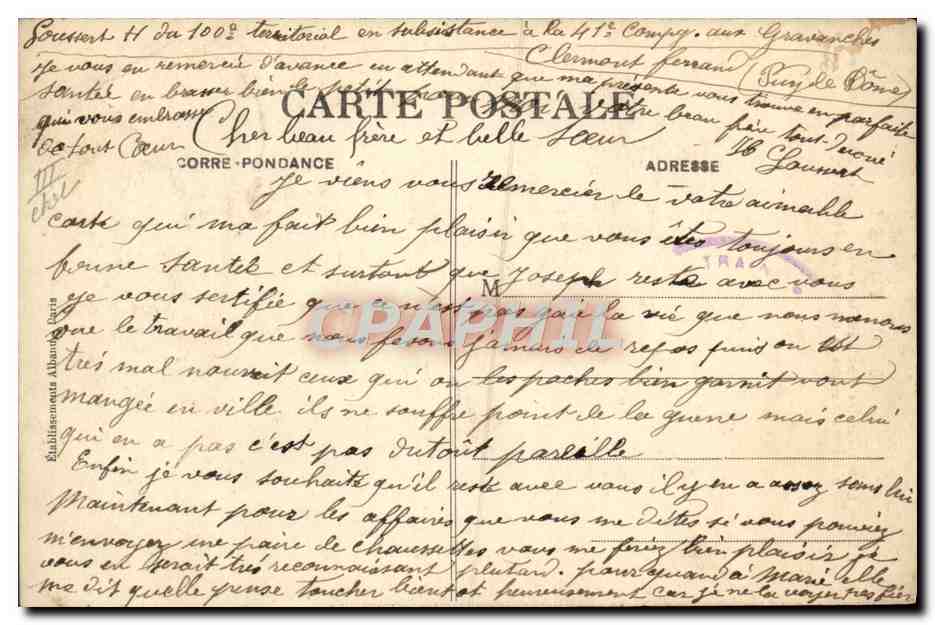 Loussert H du 100e territorial en subsistance à la 41e Compg. aux Gravanches
Clermont ferrand (Puy de Dôme)
Je vous en remercie d'avance en attendant que ma présente vous trouve en parfaite
santée en brasser bien le petit pour moi votre beau frère tout devoué
qui vous embrasse
de tout Cœur
Hb Loussert
CARTE POSTALE
Cher beau frère et belle sœur
CORRE-PONDANCE
ADRESSE
III
TRAIN
Je viens vous remercier le votre aimable
carte qui ma fait bien plaisir que vous êtes toujours en
bonne santée et surtout que Joseph reste avec vous
M
Je vous sertifie que ce n'est pas gaie la vie que nous menons
vue le travail que nous fesons jamais de repos puis on est
très mal nourrit ceux qui on les poches bien garnit vont
mangée en ville ils ne souffre point de la guerre mais celui
qui en a pas c'est pas dutout pareille
Enfin je vous souhaite qu'il reste avec vous il y en a assez sans lui
Maintenant pour les affaires que vous me dites si vous pouviez
m'envoyez une paire de chaussettes vous me feriez bien plaisir je
vous en serait très reconnaissant plutard. pour quand à Marie elle
ma dit quelle pense toucher bientot heureusement car je ne la voyez pas fier
Établissements Albaundy, Paris
CPAPHIL